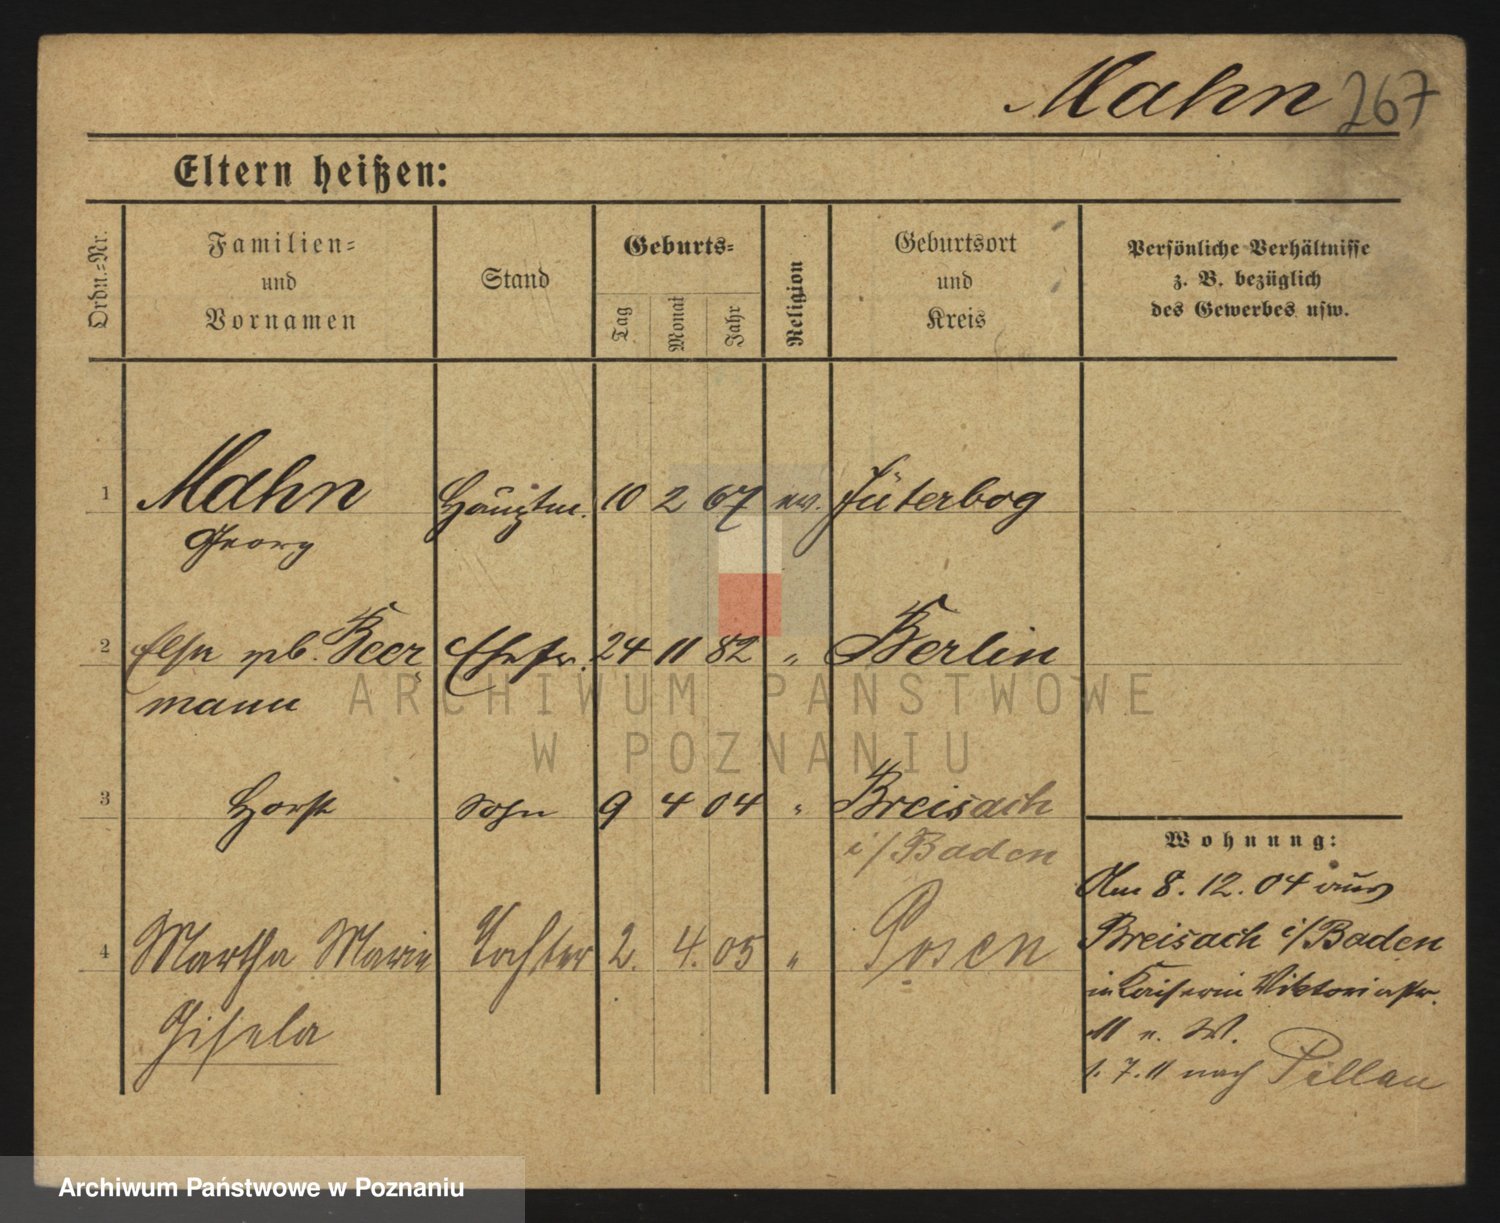 Mahn 267
Eltern heißen:
Ordn.=Nr.
Familien=
und
Vornamen
Stand
Geburts=
Tag
Monat
Jahr
Religion
Geburtsort
und
Kreis
Persönliche Verhältnisse
z. B. bezüglich
des Gewerbes usw.
1 Mahn Hauptm. 10 2 67 ev. Jüterbog
Georg
2 Else geb. Beer- Ehefr. 24 11 82 " Berlin
mann
3 Horst Sohn 9 4 04 " Breisach
i/Baden
4 Martha Marie Tochter 2. 4. 05 " Posen
Gisela
Wohnung:
Am 8. 12. 04 aus
Breisach i/Baden
in Kaiserin Viktoriastr.
11 n. W.
1. 7. 11 nach Pillau
ARCHIWUM PAŃSTWOWE
W POZNANIU
Archiwum Państwowe w Poznaniu